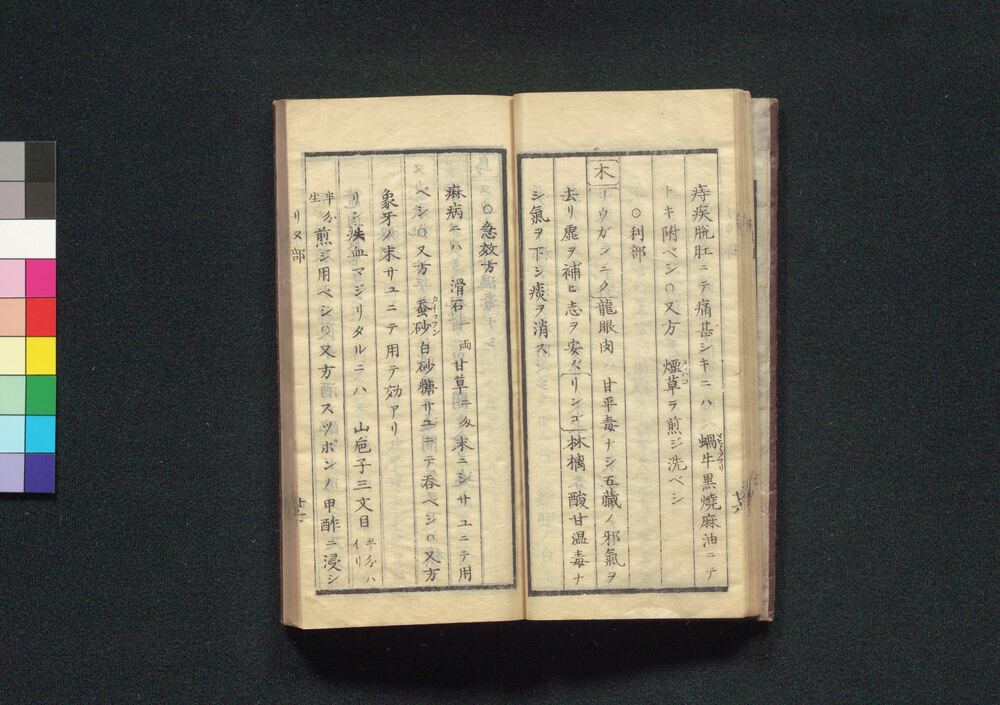 痔疾脱肛ニテ痛甚シキニハ 蝸牛黒焼麻油ニテ
トキ附ベシ○又方 煙草ヲ煎ジ洗ベシ
タバコ
○利部
木
リウガンニク 龍眼肉 甘平毒ナシ五臓ノ邪氣ヲ
去リ虚ヲ補ヒ志ヲ安ズ リンゴ 林檎 酸甘温毒ナ
シ氣ヲ下シ痰ヲ消ス
○急效方
麻病ニハ 滑石一両甘草二匁末ニシサユニテ用
ベシ○又方 蚕砂白砂糖サユニテ呑ベシ○又方
カイコノフン
象牙ノ末サユニテ用テ効アリ
リン疾血マジリタルニハ 山梔子三文目 半分ハイリ
半分生 煎ジ用ベシ○又方 スツポンノ甲酢ニ浸シ
リヌ部